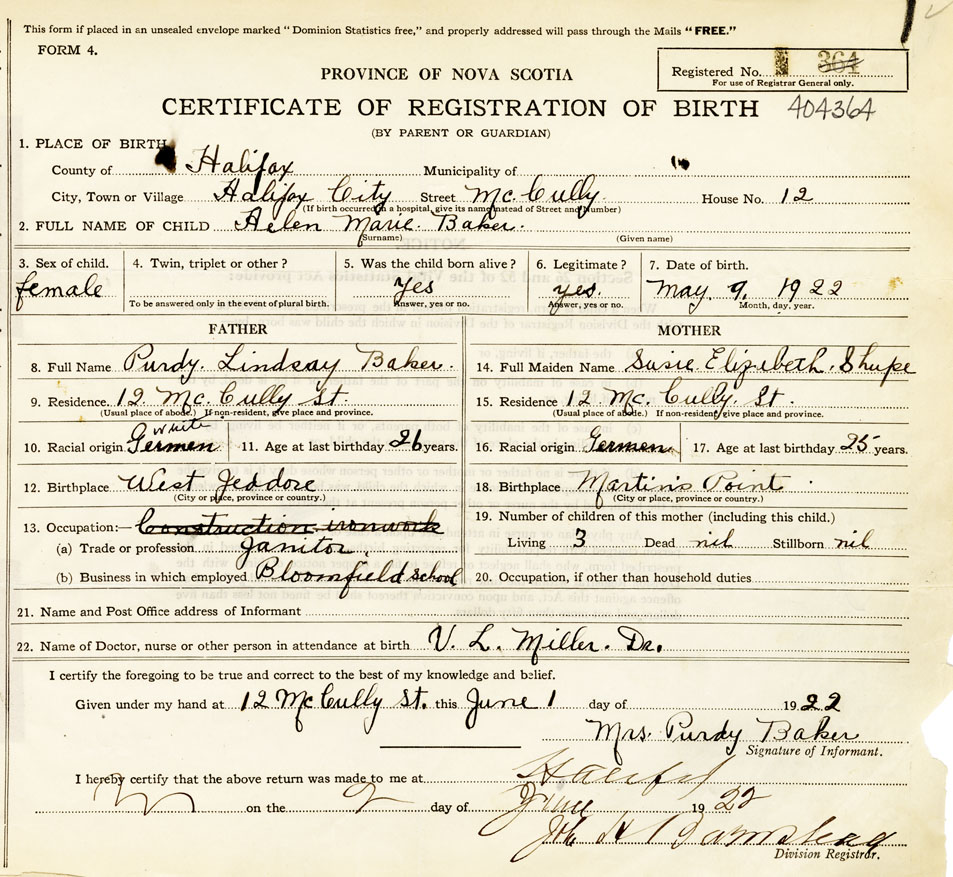 This form if placed in an unsealed envelope marked "Dominion Statistics free," and properly addressed will pass through the Mails "FREE."
FORM 4.
Registered No. 364
For use of Registrar General only.
PROVINCE OF NOVA SCOTIA
CERTIFICATE OF REGISTRATION OF BIRTH 404364
(BY PARENT OR GUARDIAN)
1. PLACE OF BIRTH
County of Halifax Municipality of
City, Town or Village Halifax City Street Mc. Cully. House No. 12
(If birth occurred in a hospital, give its name instead of Street and Number)
2. FULL NAME OF CHILD Helen Marie. Baker.
(Surname) (Given name)
3. Sex of child. 4. Twin, triplet or other? 5. Was the child born alive? 6. Legitimate? 7. Date of birth.
female Yes yes. May 9. 1922
To be answered only in the event of plural birth. Answer, yes or no. Answer, yes or no. Month, day, year.
FATHER MOTHER
8. Full Name Purdy. Lindsay Baker. 14. Full Maiden Name Susie Elizibeth. Shupe
9. Residence. 12 Mc. Cully St. 15. Residence 12 Mc. Cully. St.
(Usual place of abode.) If non-resident, give place and province. (Usual place of abode.) If non-resident, give place and province.
white
10. Racial origin Germen 11. Age at last birthday 26 years. 16. Racial origin Germen 17. Age at last birthday 25 years.
12. Birthplace West Jeddore 18. Birthplace Martins Point
(City or place, province or country.) (City or place, province or country.)
13. Occupation:— Construction ironwork 19. Number of children of this mother (including this child.)
(a) Trade or profession Janitor. Living 3 Dead nil Stillborn nil
(b) Business in which employed Bloomfield School 20. Occupation, if other than household duties
21. Name and Post Office address of Informant
22. Name of Doctor, nurse or other person in attendance at birth V. L. Miller. Dr.
I certify the foregoing to be true and correct to the best of my knowledge and belief.
Given under my hand at 12 McCully St. this June 1 day of 1922
Mrs. Purdy Baker
Signature of Informant.
I hereby certify that the above return was made to me at Halifax
on the 2 day of June 1922
Division Registrar.